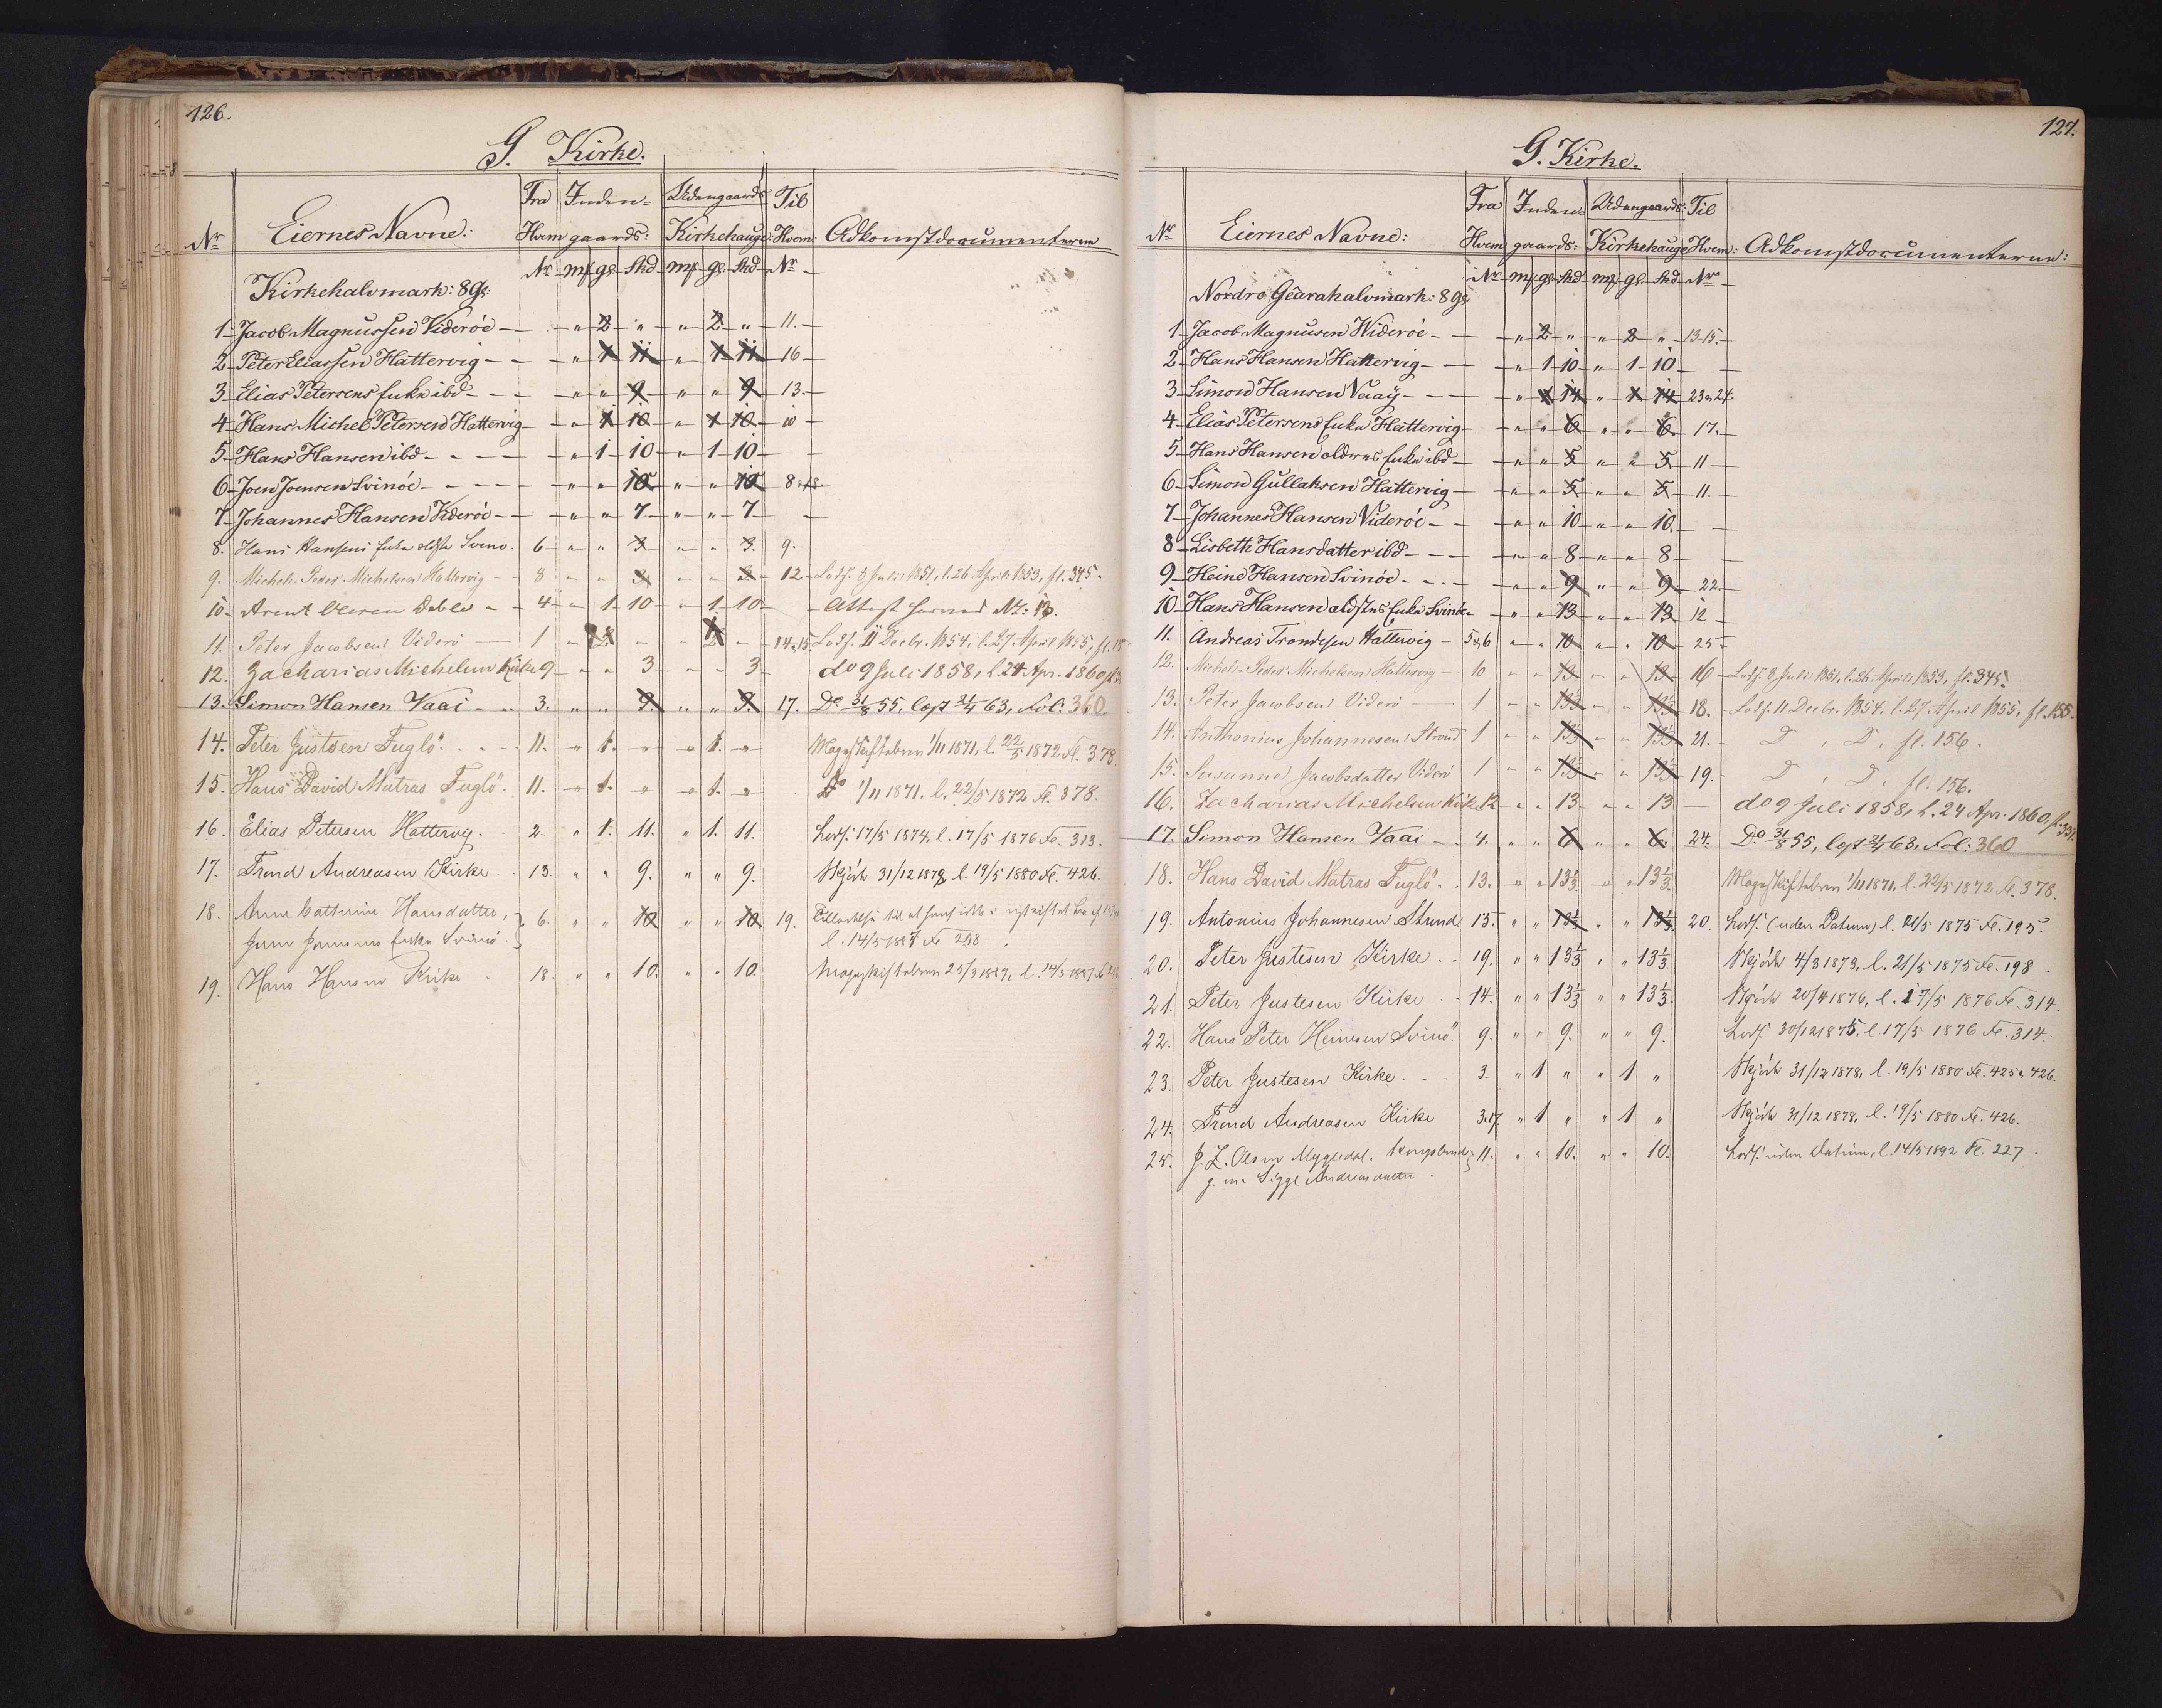 126.
G. Kirke.
Nr Eiernes Navne: Fra Hvem Inden- gaards: Udengaards Kirkehauge: Til Hvem: Adkomstdocumenterne
Nr mk gl. Skd mk gl. Skd Nr
Kirkehalvmark: 8 Gl:
1 Jacob Magnussen Viderøe " 2 " " 2 " 11.
2 Peter Eliassen Hattervig " 1 11 " 1 11 16
3 Elias Petersens Enke ibd " " 9 " " 9 13.
4 Hans Michel Petersen Hattervig " 1 10 " 1 10 10
5 Hans Hansen ibd " 1 10 " 1 10
6 Joen Joensen Svinøe " " 10 " " 10 8 18
7 Johannes Hansen Viderøe " " 7 " " 7
8. Hans Hansens Enke ældste Svino. 6 " " 3 " " 3. 9.
9. Michel Peder Michelsen Hattervig 8 " " 3 " " 3 12 Lodf. 8 Juli 1851, l. 26 April 1853, fl. 345.
10 4 " 1 10 " 1 10 Attest Nr: 13.
11. Peter Jacobsen Viderø 1 " 2 " " 2 " 14 & 15 Lodf. 11 Decbr. 1854, l. 27 April 1855, fl.
12. Zacharias Michelsen Kirke 9 " " 3 " " 3 do 9 Juli 1858, l. 24 Apr. 1860
13. Simon Hansen Vaai 3. " " 9. " " 9. 17. Do 31/8 55, læst 21/4 63, Fol: 360
14. Peter Justsen Fuglö 11. " 1. " " 1. " Mageskiftebrev 1/11 1871, l. 22/5 1872 Fl. 378.
15. Hans David Matras Fuglö. 11. " 1. " " 1. " Do 1/11 1871. l. 22/5 1872 Fl. 378.
16. Elias Petersen Hattervig. 2. " 1. 11. " 1. 11. Lodf. 17/5 1874, l. 17/5 1876 Fl. 313.
17. Trond Andreasen Kirke 13. " " 9. " " 9. Skjöde 31/12 1878 l. 19/5 1880 Fl. 426.
18. Anne Cathrine Hansdatter, 6. " " 10 " " 10 19.
Joen Joensens Enke Svinö. l. 14/5 1887 Fl 298.
19. Hans Hansen Kirke 18. " " 10. " " 10. Mageskiftebrev 25/3 1887, l. 14/5 1887
127.
G. Kirke.
Nr Eiernes Navne: Fra Hvem Inden gaards: Udengaards: Kirkehauge Til Hvem: Adkomstdocumenterne:
Nr mk gl Skd mk gl. Skd Nr
Nordre Gearahalvmark: 8 Gl:
1 Jacob Magnusen Widerøe " 2 " " 2 " 13-15.
2 Hans Hansen Hattervig " 1 10 " 1 10
3 Simon Hansen Vaaÿ " 1 14 " 1 14 23 & 24.
4 Elias Petersens Enke Hattervig " " 6 " " 6. 17.
5 Hans Hansen oldernes Enke ibd " " 5 " " 5 11
6 Simon Gullaksen Hattervig " " 5 " " 5 11.
7 Johannes Hansen Viderøe " " 10 " " 10.
8 Lisbeth Hansdatter ibd " " 8 " " 8
9 Heine Hansen Svinøe " " 9 " " 9 22
10 Hans Hansen ældstes Enke Svinöe " " 13 " " 13 12
11. Andreas Trondesen Hattervig 5 & 6 " " 10 " " 10 25
12. Michel Peder Michelsen Hattervig 10 " " 13 " " 13 16 Lodf. 8 Juli 1851, l. 26 April 1853, fl. 345.
13. Peter Jacobsen Viderö 1 " " 13⅓ " " 13⅓ 18. Lodf. 11 Decbr. 1854, l. 27 April 1855, fl. 155.
14. Anthonius Johannesen Strand 1 " " 13⅓ " " 13⅓ 21. Do, Do, fl. 156.
15. Susanne Jacobsdatter Viderö 1 " " 13⅓ " " 13⅓ 19. Do, Do, fl. 156.
16. Zacharias Michelsen Kirke 12 " " 13 " " 13 do 9 Juli 1858, l. 24 Apr. 1860 fl. 331.
17. Simon Hansen Vaai 4. " " 6 " " 6. 24. Do 31/8 55, læst 21/4 63, Fol: 360
18. Hans David Matras Fuglö. 13. " " 13⅓ " " 13⅓. Mageskiftebrev 1/11 1871, l. 22/5 1872 Fl. 378.
19. Antonius Johannesen Strand 15. " " 13⅓ " " 13⅓ 20. Lodf. (uden Datum) l. 21/5 1875 Fl. 195.
20. Peter Justesen Kirke 19. " " 13⅓ " " 13⅓. Skjöde 4/8 1873, l. 21/5 1875 Fl. 198.
21. Peter Justesen Kirke 14. " " 13⅓ " " 13⅓. Skjöde 20/4 1876, l. 17/5 1876 Fl. 314.
22. Hans Peter Heinesen Svinö. 9. " " 9. " " 9. Lodf. 30/12 1875. l. 17/5 1876 Fl. 314.
23. Peter Justesen Kirke. 3. " 1 " " 1 " Skjöde 31/12 1878, l. 19/5 1880 Fl. 425 & 426.
24. Trond Andreasen Kirke 3 & 17 " 1 " " 1 " Skjöde 31/12 1878, l. 19/5 1880 Fl. 426.
25. J. Z. Olsen Mygledal, Kongsbonde 11. " " 10. " " 10. Lodf. uden Datum, l. 14/5 1892 Fl. 227.
g. m. Sigge Andreasdatter.